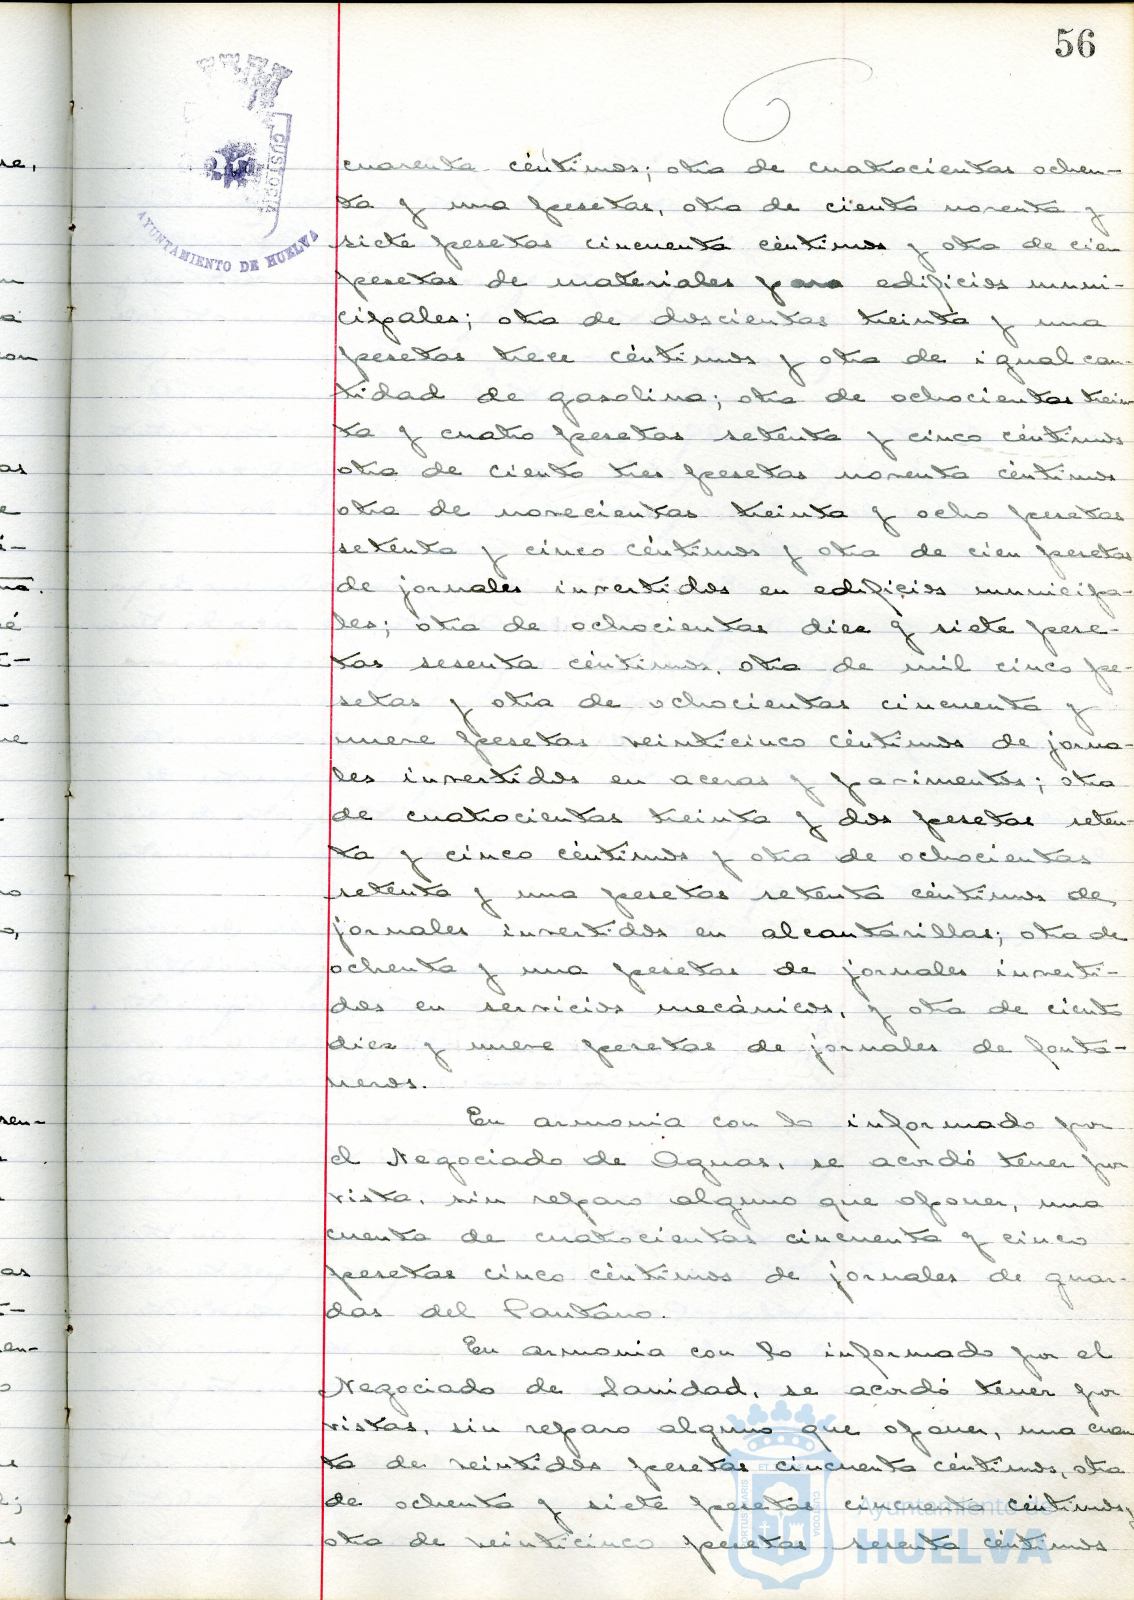 56
CUSTODIA
AYUNTAMIENTO DE HUELVA
cuarenta céntimos; otra de cuatrocientas ochen-
ta y una pesetas, otra de ciento noventa y
siete pesetas cincuenta céntimos y otra de cien
pesetas de materiales para edificios muni-
cipales; otra de doscientas treinta y una
pesetas trece céntimos y otra de igual can-
tidad de gasolina; otra de ochocientas trein-
ta y cuatro pesetas setenta y cinco céntimos
otra de ciento tres pesetas noventa céntimos
otra de novecientas treinta y ocho pesetas
setenta y cinco céntimos y otra de cien pesetas
de jornales invertidos en edificios municipa-
les; otra de ochocientas diez y siete pese-
tas sesenta céntimos, otra de mil cinco pe-
setas y otra de ochocientas cincuenta y
nueve pesetas veinticinco céntimos de jorna-
les invertidos en aceras y pavimentos; otra
de cuatrocientas treinta y dos pesetas seten-
ta y cinco céntimos y otra de ochocientas
setenta y una pesetas setenta céntimos de
jornales invertidos en alcantarillas; otra de
ochenta y una pesetas de jornales inverti-
dos en servicios mecánicos, y otra de ciento
diez y nueve pesetas de jornales de fonta-
neros.
En armonia con lo informado por
el Negociado de Aguas, se acordó tener por
vista, sin reparo alguno que oponer, una
cuenta de cuatrocientas cincuenta y cinco
pesetas cinco céntimos de jornales de guar-
das del Pantano.
En armonia con lo informado por el
Negociado de Sanidad, se acordó tener por
vistas, sin reparo alguno que oponer, una cuen-
ta de veintidos pesetas cincuenta céntimos, otra
de ochenta y siete pesetas cincuenta céntimos,
otra de veinticinco pesetas sesenta céntimos
Ayuntamiento de
HUELVA